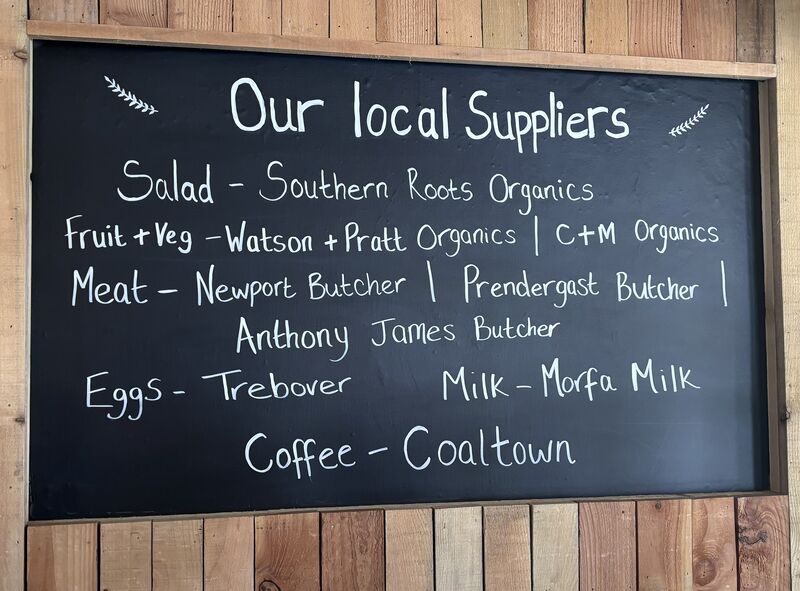 Our local Suppliers
Salad - Southern Roots Organics
Fruit + Veg - Watson + Pratt Organics | C+M Organics
Meat - Newport Butcher | Prendergast Butcher |
Anthony James Butcher
Eggs - Trebover Milk - Morfa Milk
Coffee - Coaltown